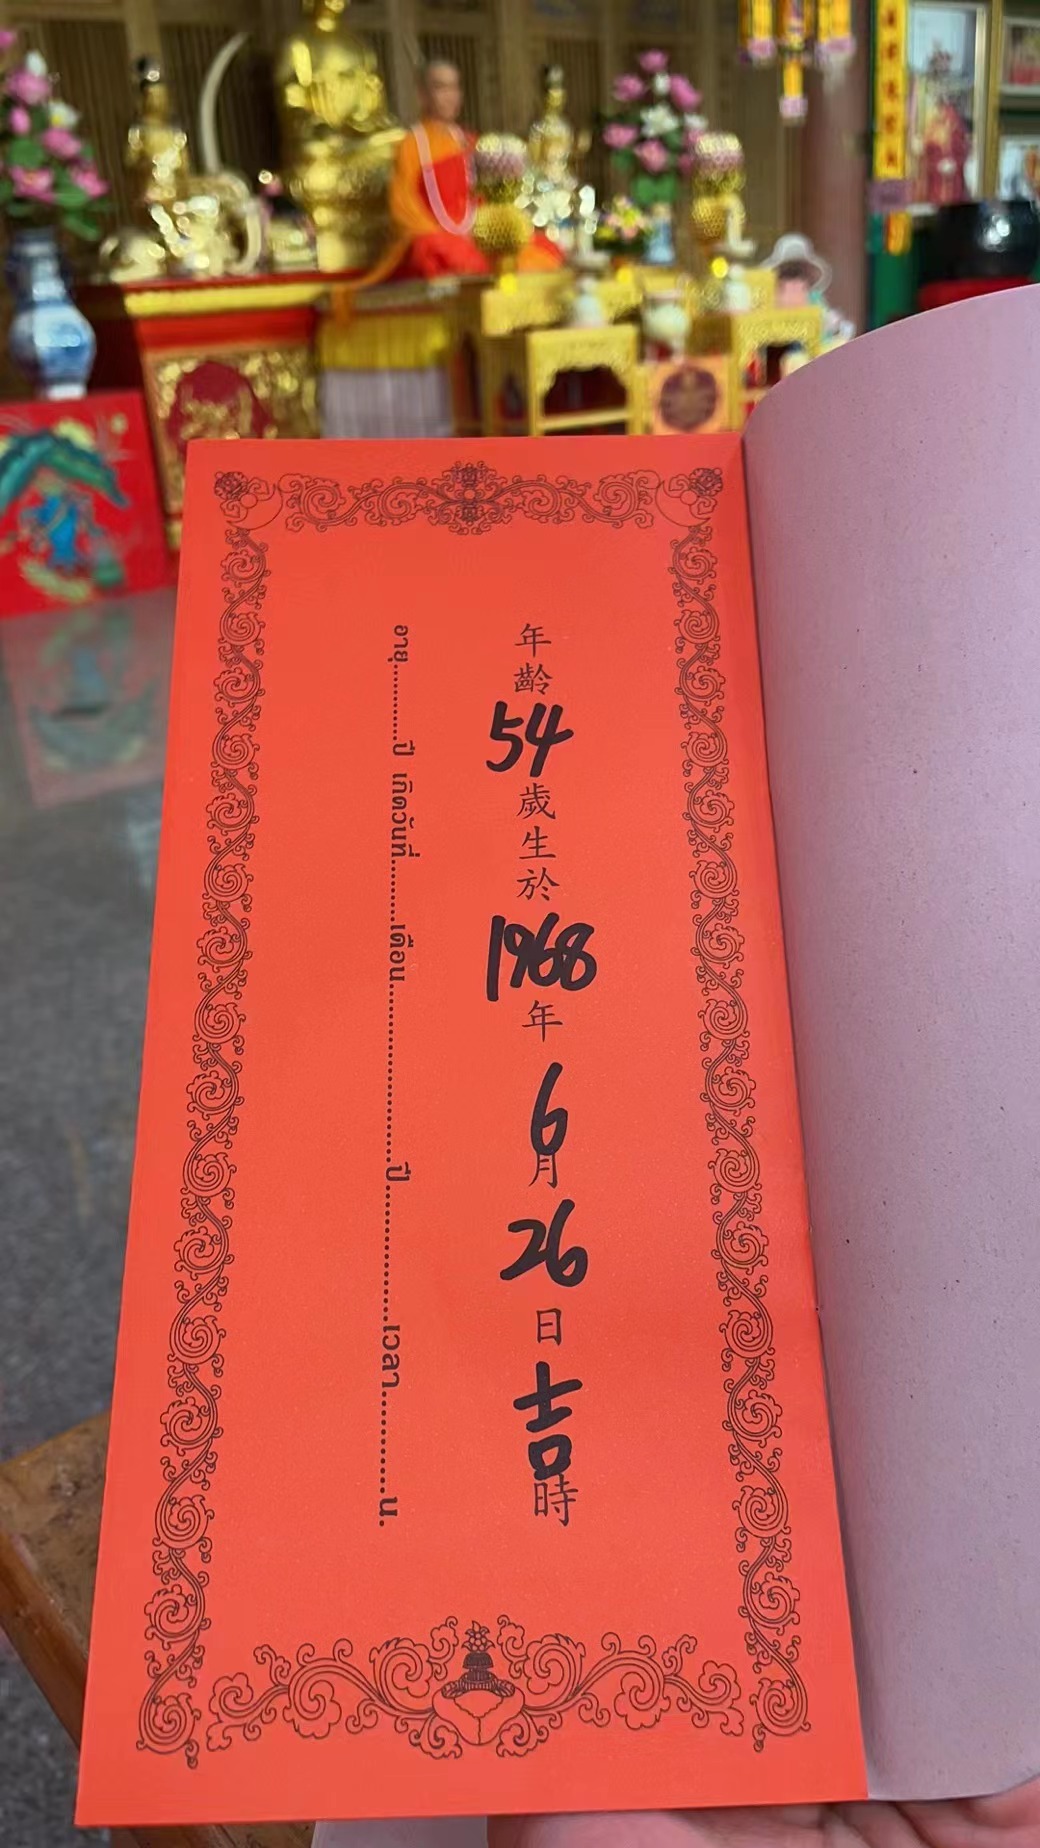 年齡54歲生於1968年6月26日吉時
อายุ............ปี เกิดวันที่..........เดือน..............................ปี......................เวลา...............น.